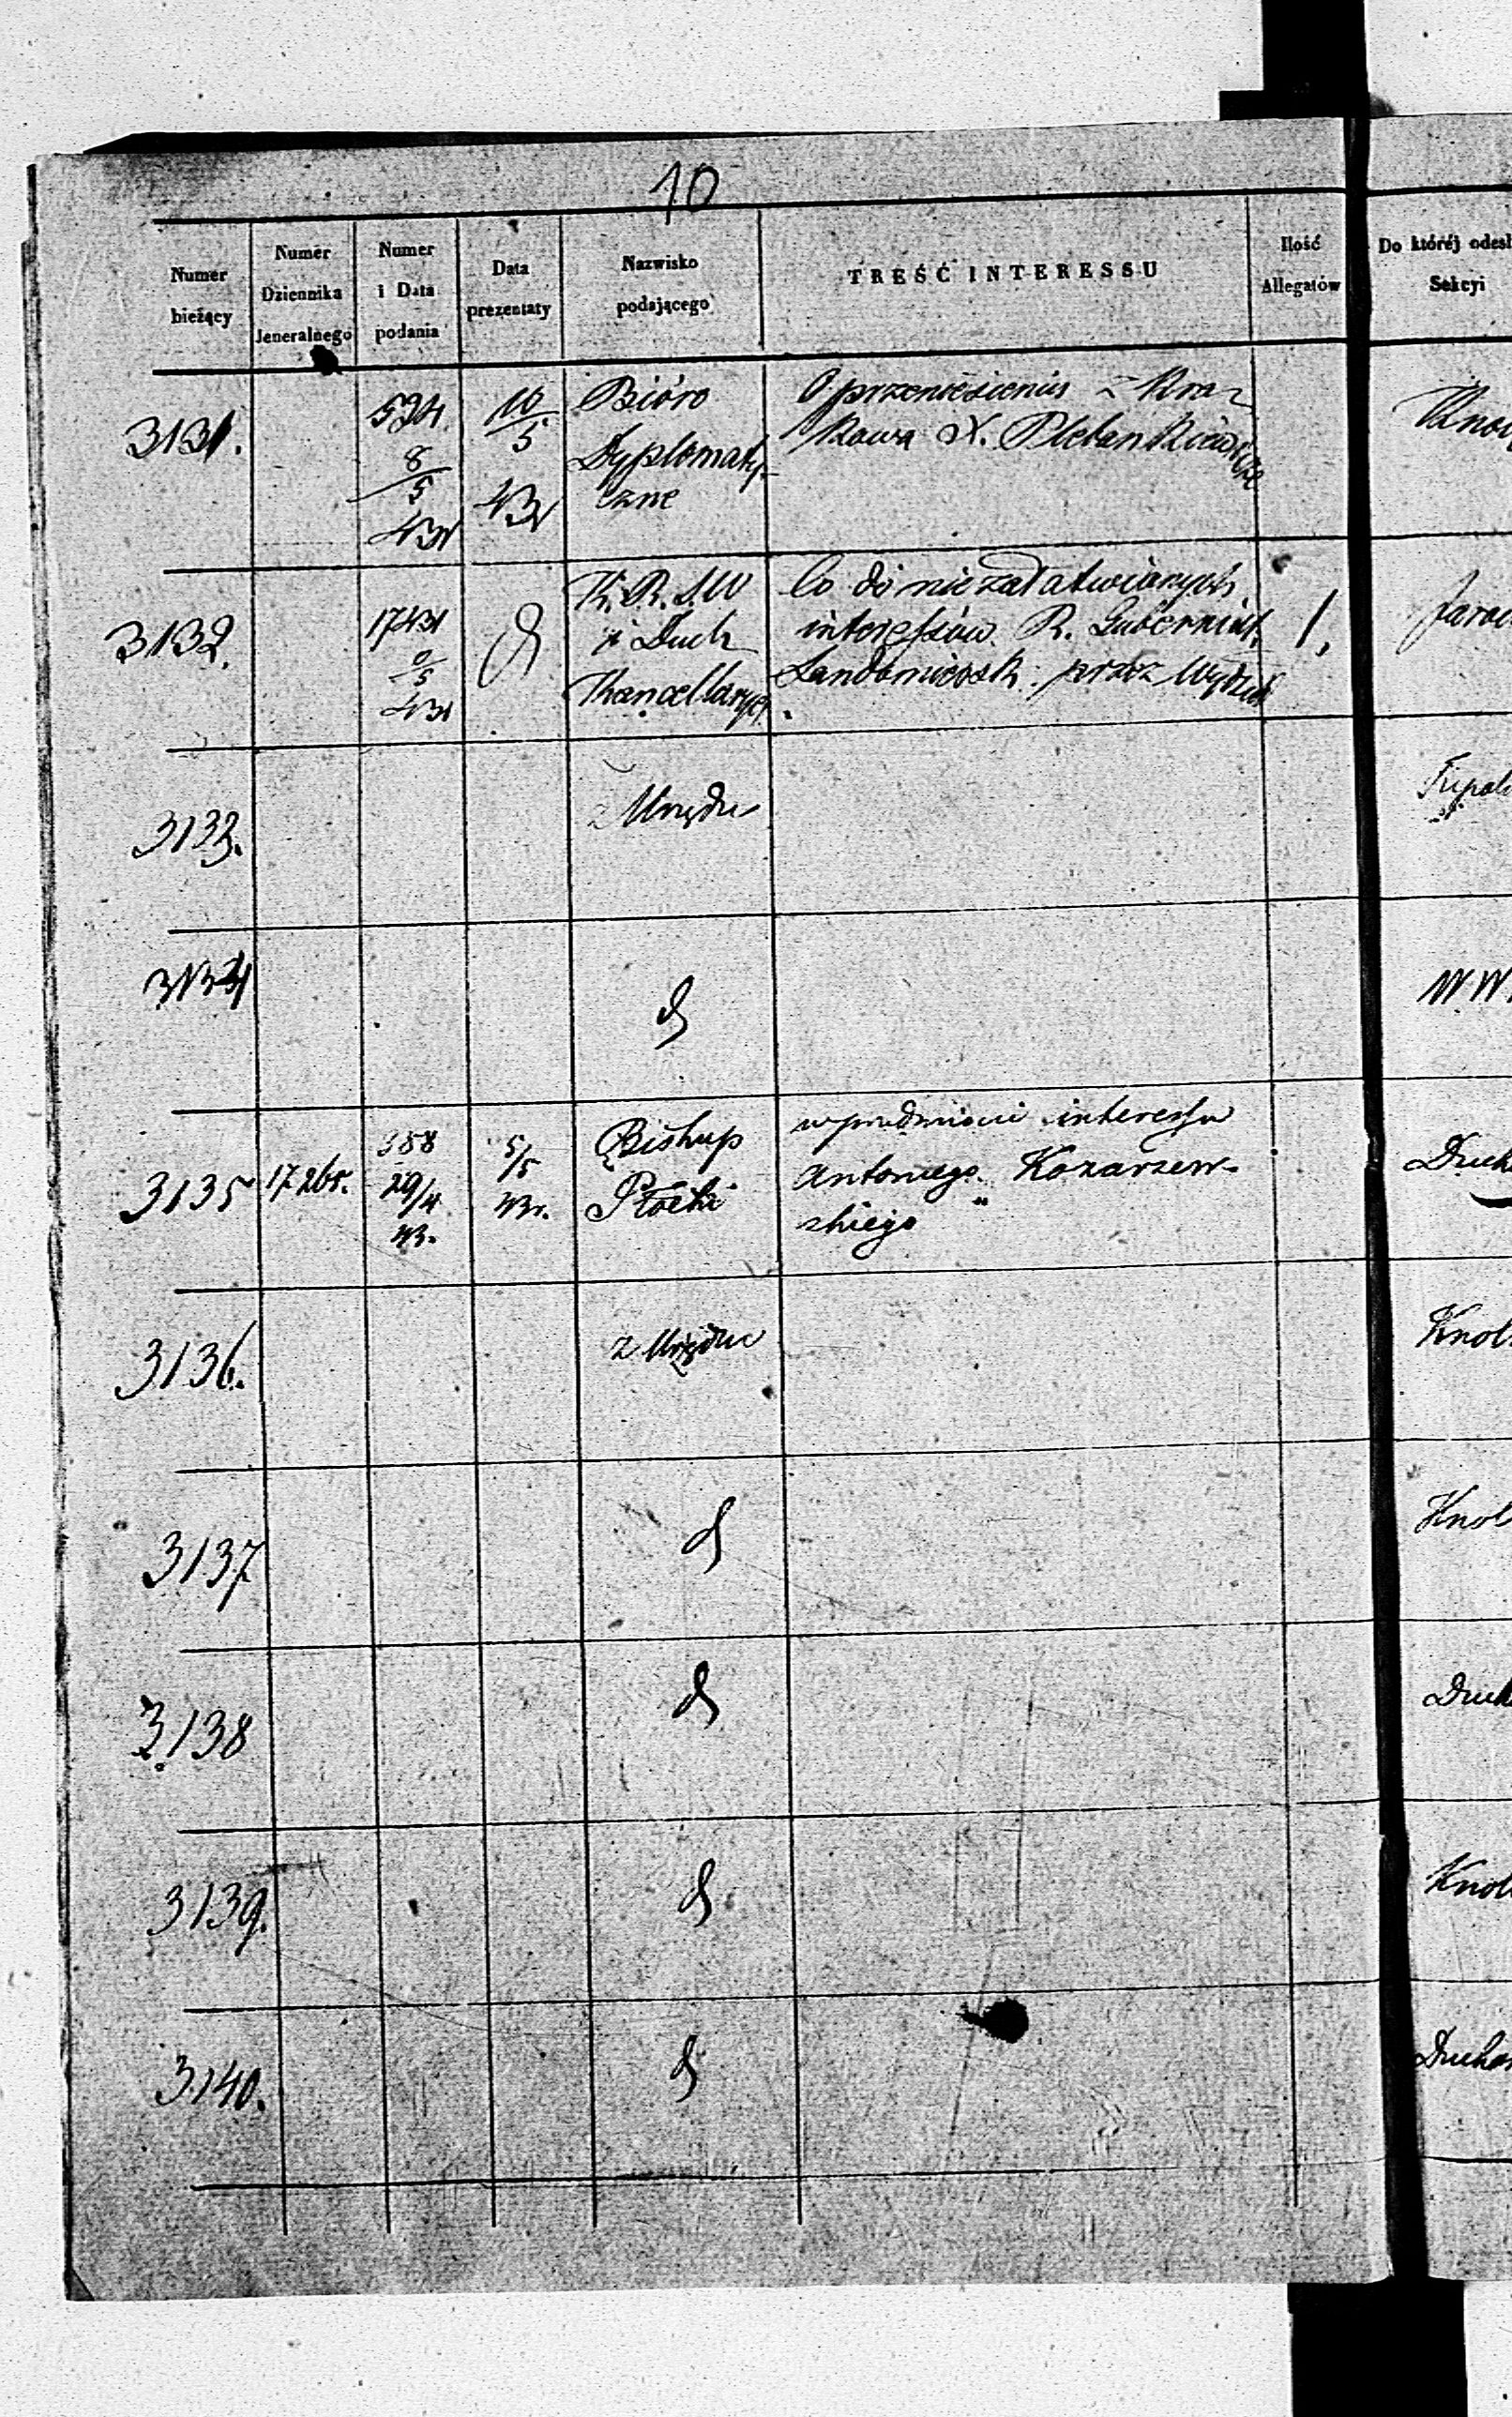 10
Numer
bieżący
Numer
Dziennika
Jeneralnego
Numer
i Data
podania
Data
prezentaty
Nazwisko
podającego
TREŚĆ INTERESSU
Ilość
Allegatów
Do któréj odesł
Sekcyi
3131.
524.
8/5
43r
10/5
43r
Bióro
Dyplomaty-
czne
O przeniesieniu z Kra-
kowa X. Plebankiewicza
3132.
43r
K. R. S. W
i Duch
Kancellarya
Co do niezałatwianych
interessów R. Gubernial.
Sandomiersk: przez Wydział
1,
3133.
z Urzędu
3134
d
WW
3135
388
29/4
43.
5/5
43r.
Biskup
Płocki
w przedmiocie interessu
Antoniego Kozarzew-
skiego
Duch
3136.
z Urzędu
Knol
3137
d
Knol
3138
d
Duch
3139.
d
Knol
3140.
d
Duch